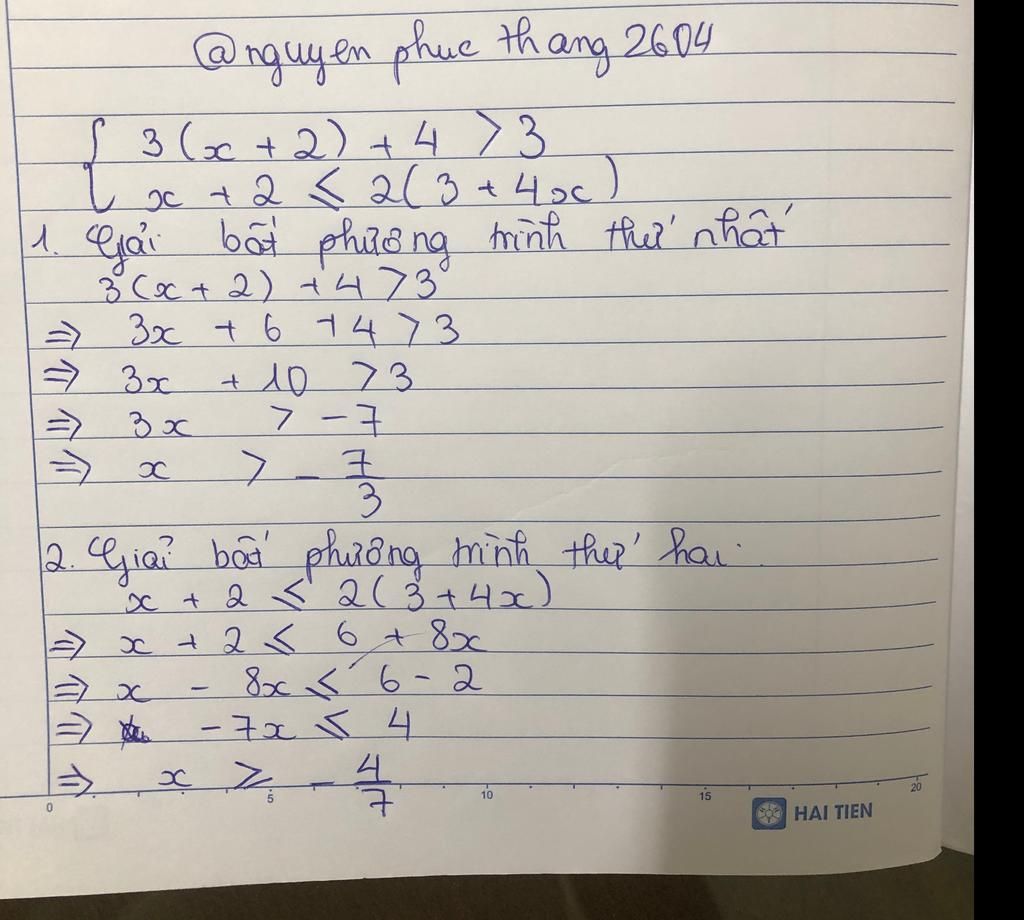 @nguyen phuc thang 2604
{ 3(x + 2) + 4 > 3
x + 2 ≤ 2(3 + 4x)
1. Giải bất phương trình thứ nhất
3(x + 2) + 4 > 3
⇒ 3x + 6 + 4 > 3
⇒ 3x + 10 > 3
⇒ 3x > - 7
⇒ x > - 7/3
2. Giải bất phương trình thứ hai.
x + 2 ≤ 2(3 + 4x)
⇒ x + 2 ≤ 6 + 8x
⇒ x - 8x ≤ 6 - 2
⇒ - 7x ≤ 4
⇒ x ≥ - 4/7
0 5 10 15 20
HAI TIEN